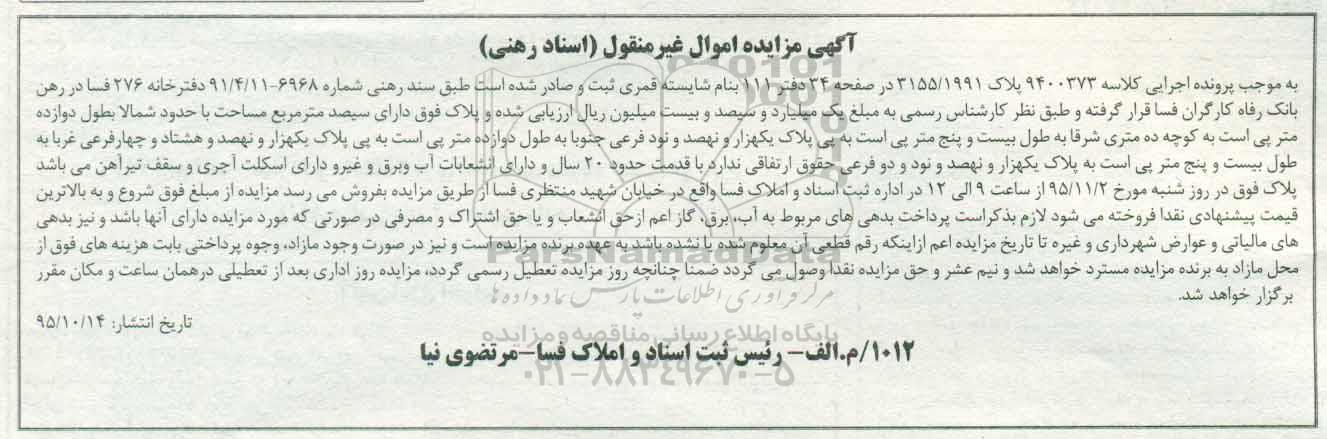 آگهی مزایده اموال غیرمنقول (اسناد رهنی)
به موجب پرونده اجرایی کلاسه ۹۴۰۰۳۷۳ پلاک ۳۱۵۵/۱۹۹۱ در صفحه ۳۴ دفتر ۱۱۱ بنام شایسته قمری ثبت و صادر شده است طبق سند رهنی شماره ۶۹۶۸-۹۱/۴/۱۱ دفترخانه ۲۷۶ فسا در رهن
بانک رفاه کارگران فسا قرار گرفته و طبق نظر کارشناس رسمی به مبلغ یک میلیارد و سیصد و بیست میلیون ریال ارزیابی شده و پلاک فوق دارای سیصد مترمربع مساحت با حدود شمالا بطول دوازده
متر پی است به کوچه ده متری شرقا به طول بیست و پنج متر پی است به پی پلاک یکهزار و نهصد و نود فرعی جنوبا به طول دوازده متر پی است به پی پلاک یکهزار و نهصد و هشتاد و چهارفرعی غربا به
طول بیست و پنج متر پی است به پلاک یکهزار و نهصد و نود و دو فرعی حقوق ارتفاقی ندارد با قدمت حدود ۲۰ سال و دارای انشعابات آب وبرق و غیرو دارای اسکلت آجری و سقف تیرآهن می باشد
پلاک فوق در روز شنبه مورخ ۹۵/۱۱/۲ از ساعت ۹ الی ۱۲ در اداره ثبت اسناد و املاک فسا واقع در خیابان شهید منتظری فسا از طریق مزایده بفروش می رسد مزایده از مبلغ فوق شروع و به بالاترین
قیمت پیشنهادی نقدا فروخته می شود لازم بذکراست پرداخت بدهی های مربوط به آب، برق، گاز اعم ازحق انشعاب و یا حق اشتراک و مصرفی در صورتی که مورد مزایده دارای آنها باشد و نیز بدهی
های مالیاتی و عوارض شهرداری و غیره تا تاریخ مزایده اعم ازاینکه رقم قطعی آن معلوم شده یا نشده باشد به عهده برنده مزایده است و نیز در صورت وجود مازاد، وجوه پرداختی بابت هزینه های فوق از
محل مازاد به برنده مزایده مسترد خواهد شد و نیم عشر و حق مزایده نقدا وصول می گردد ضمنا چنانچه روز مزایده تعطیل رسمی گردد، مزایده روز اداری بعد از تعطیلی درهمان ساعت و مکان مقرر
برگزار خواهد شد.
تاریخ انتشار: ۹۵/۱۰/۱۴
۱۰۱۲/م.الف- رئیس ثبت اسناد و املاک فسا-مرتضوی نیا
ParsNamadData
مرکز فرآوری اطلاعات پارس نماد داده ها
پایگاه اطلاع رسانی مناقصه و مزایده
۰۲۱-۸۸۳۴۹۶۷۰-۵